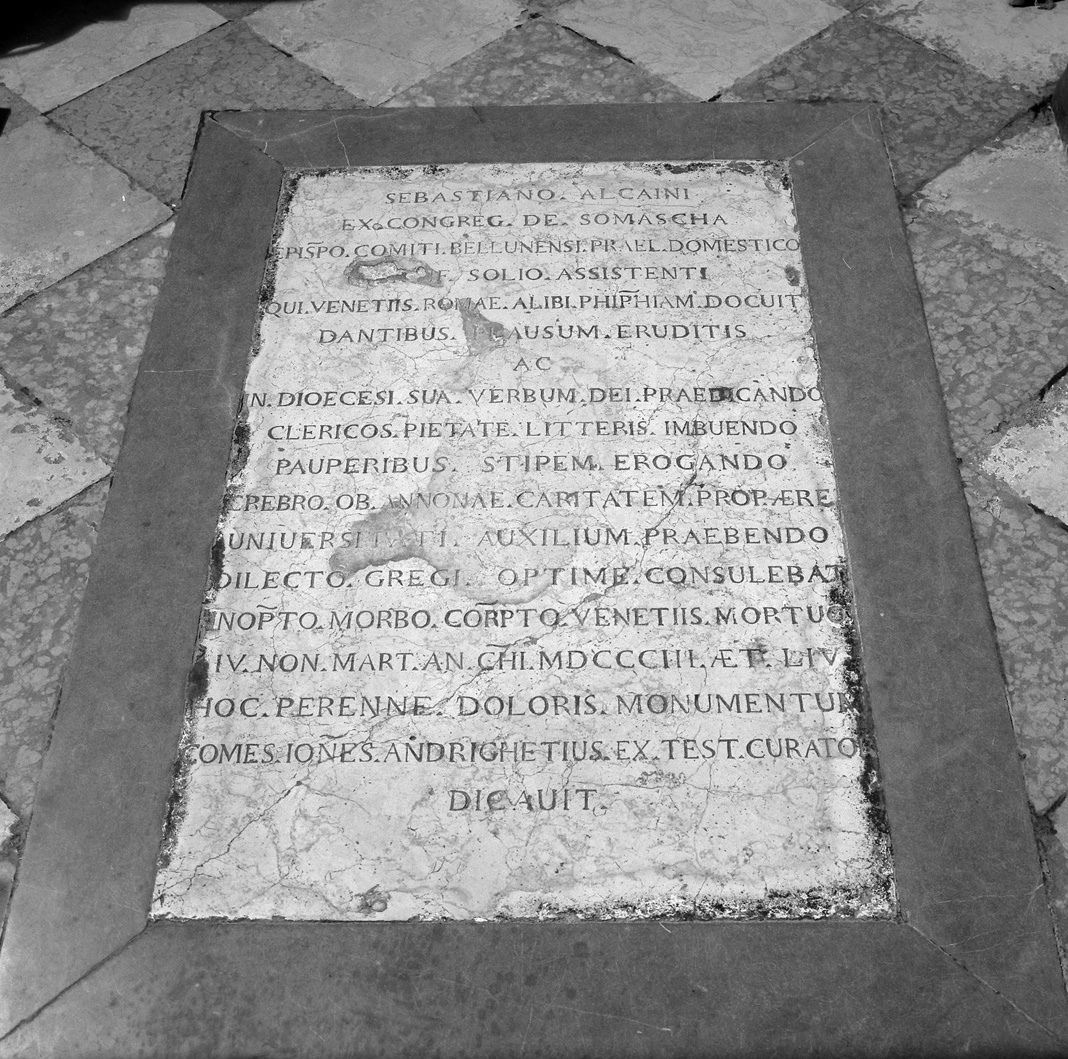 SEBASTIANO. ALCAINI
EX. CONGREG. DE. SOMASCHA
EPISP̄O. COMITI. BELLUNENSI. PRAEL. DOMESTICO
SOLIO. ASSISTENTI
QUI. VENETIIS. ROMAE. ALIBI. PHIP̄HIAM. DOCUIT
DANTIBUS. PLAUSUM. ERUDITIS
AC
IN. DIOECESI. SUA. VERBUM. DEI. PRAEDICANDO
CLERICOS. PIETATE. LITTERIS. IMBUENDO
PAUPERIBUS. STIPEM. EROGANDO
CREBRO. OB. ANNONAE. CARITATEM. PROP. ÆRE
UNIUERSITATI. AUXILIUM. PRAEBENDO
DILECTO. GREGI. OPTIME. CONSULEBAT
INOP̄TO. MORBO. CORR̄PTO. VENETIIS. MORTUO
IV. NON. MART. AN. CH̄I. MDCCCIII. ÆT. LIV
HOC. PERENNE. DOLORIS. MONUMENTUM
COMES. IOÑES. ANDRIGHETIUS. EX. TEST. CURATO
DICAUIT.